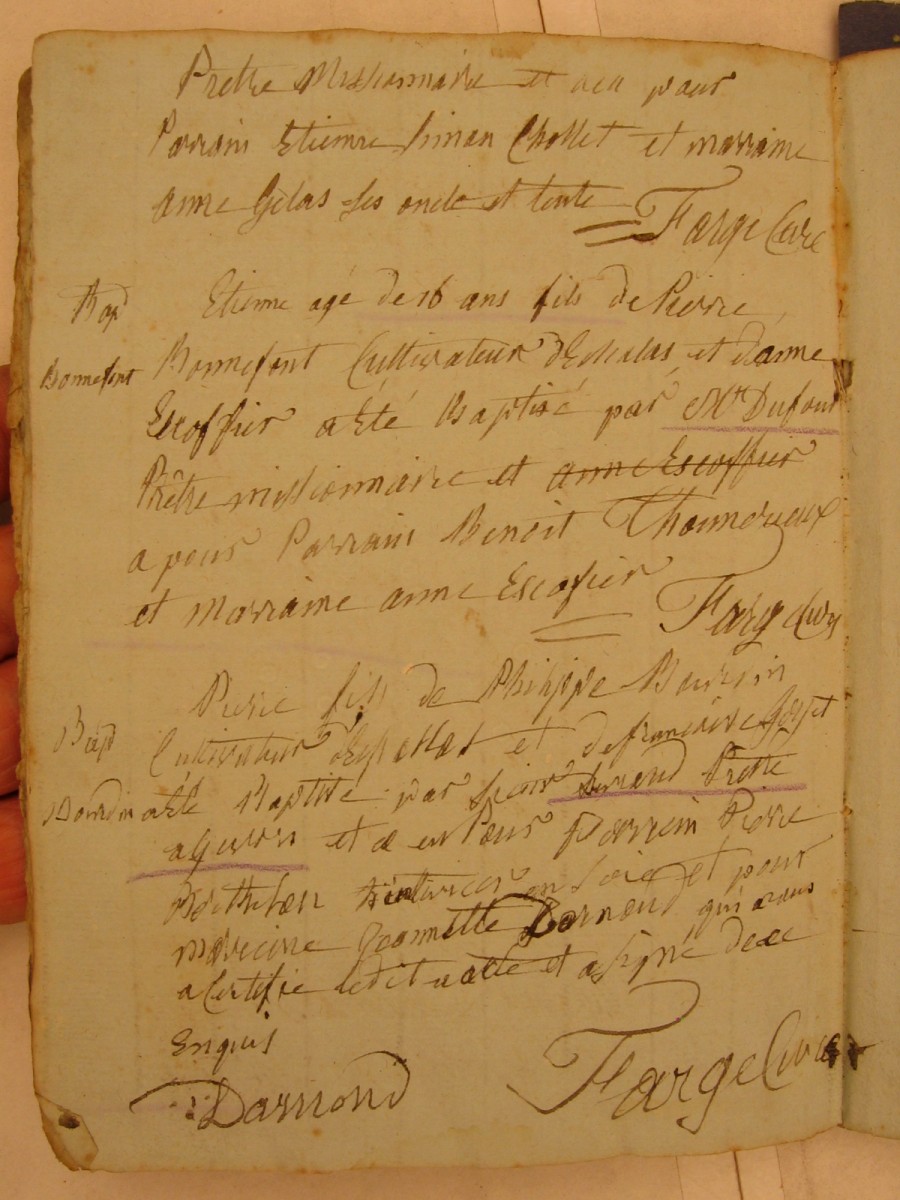 Pretre Missionnaire et a eu pour
Parrain Etienne Simon Chollet et marraine
anne Gélas ses oncle et tente Farge Cure
Bap
Bonnefont
Etienne agé de 16 ans fils de Pierre
Bonnefont Cultivateur dEchalas et danne
Escoffier a Eté Baptisé par Mr Dufour
Prêtre missionnaire et anne Escoffier
a pour Parrain Benoit Thoumeroux
et marraine anne Escofier
Farge Cure
Bap
Bourdin
Pierre fils de Philippe
Cultivateur et de francoise
a Eté Baptisé par Sieur Pretre
a Givors et a eu Pour Parrein Pierre
en Soie et pour
mareine Jeannette Darnond qui nous
a Certifie ledit acte et a signé de ce
Enquis
Darnond Farge Cure